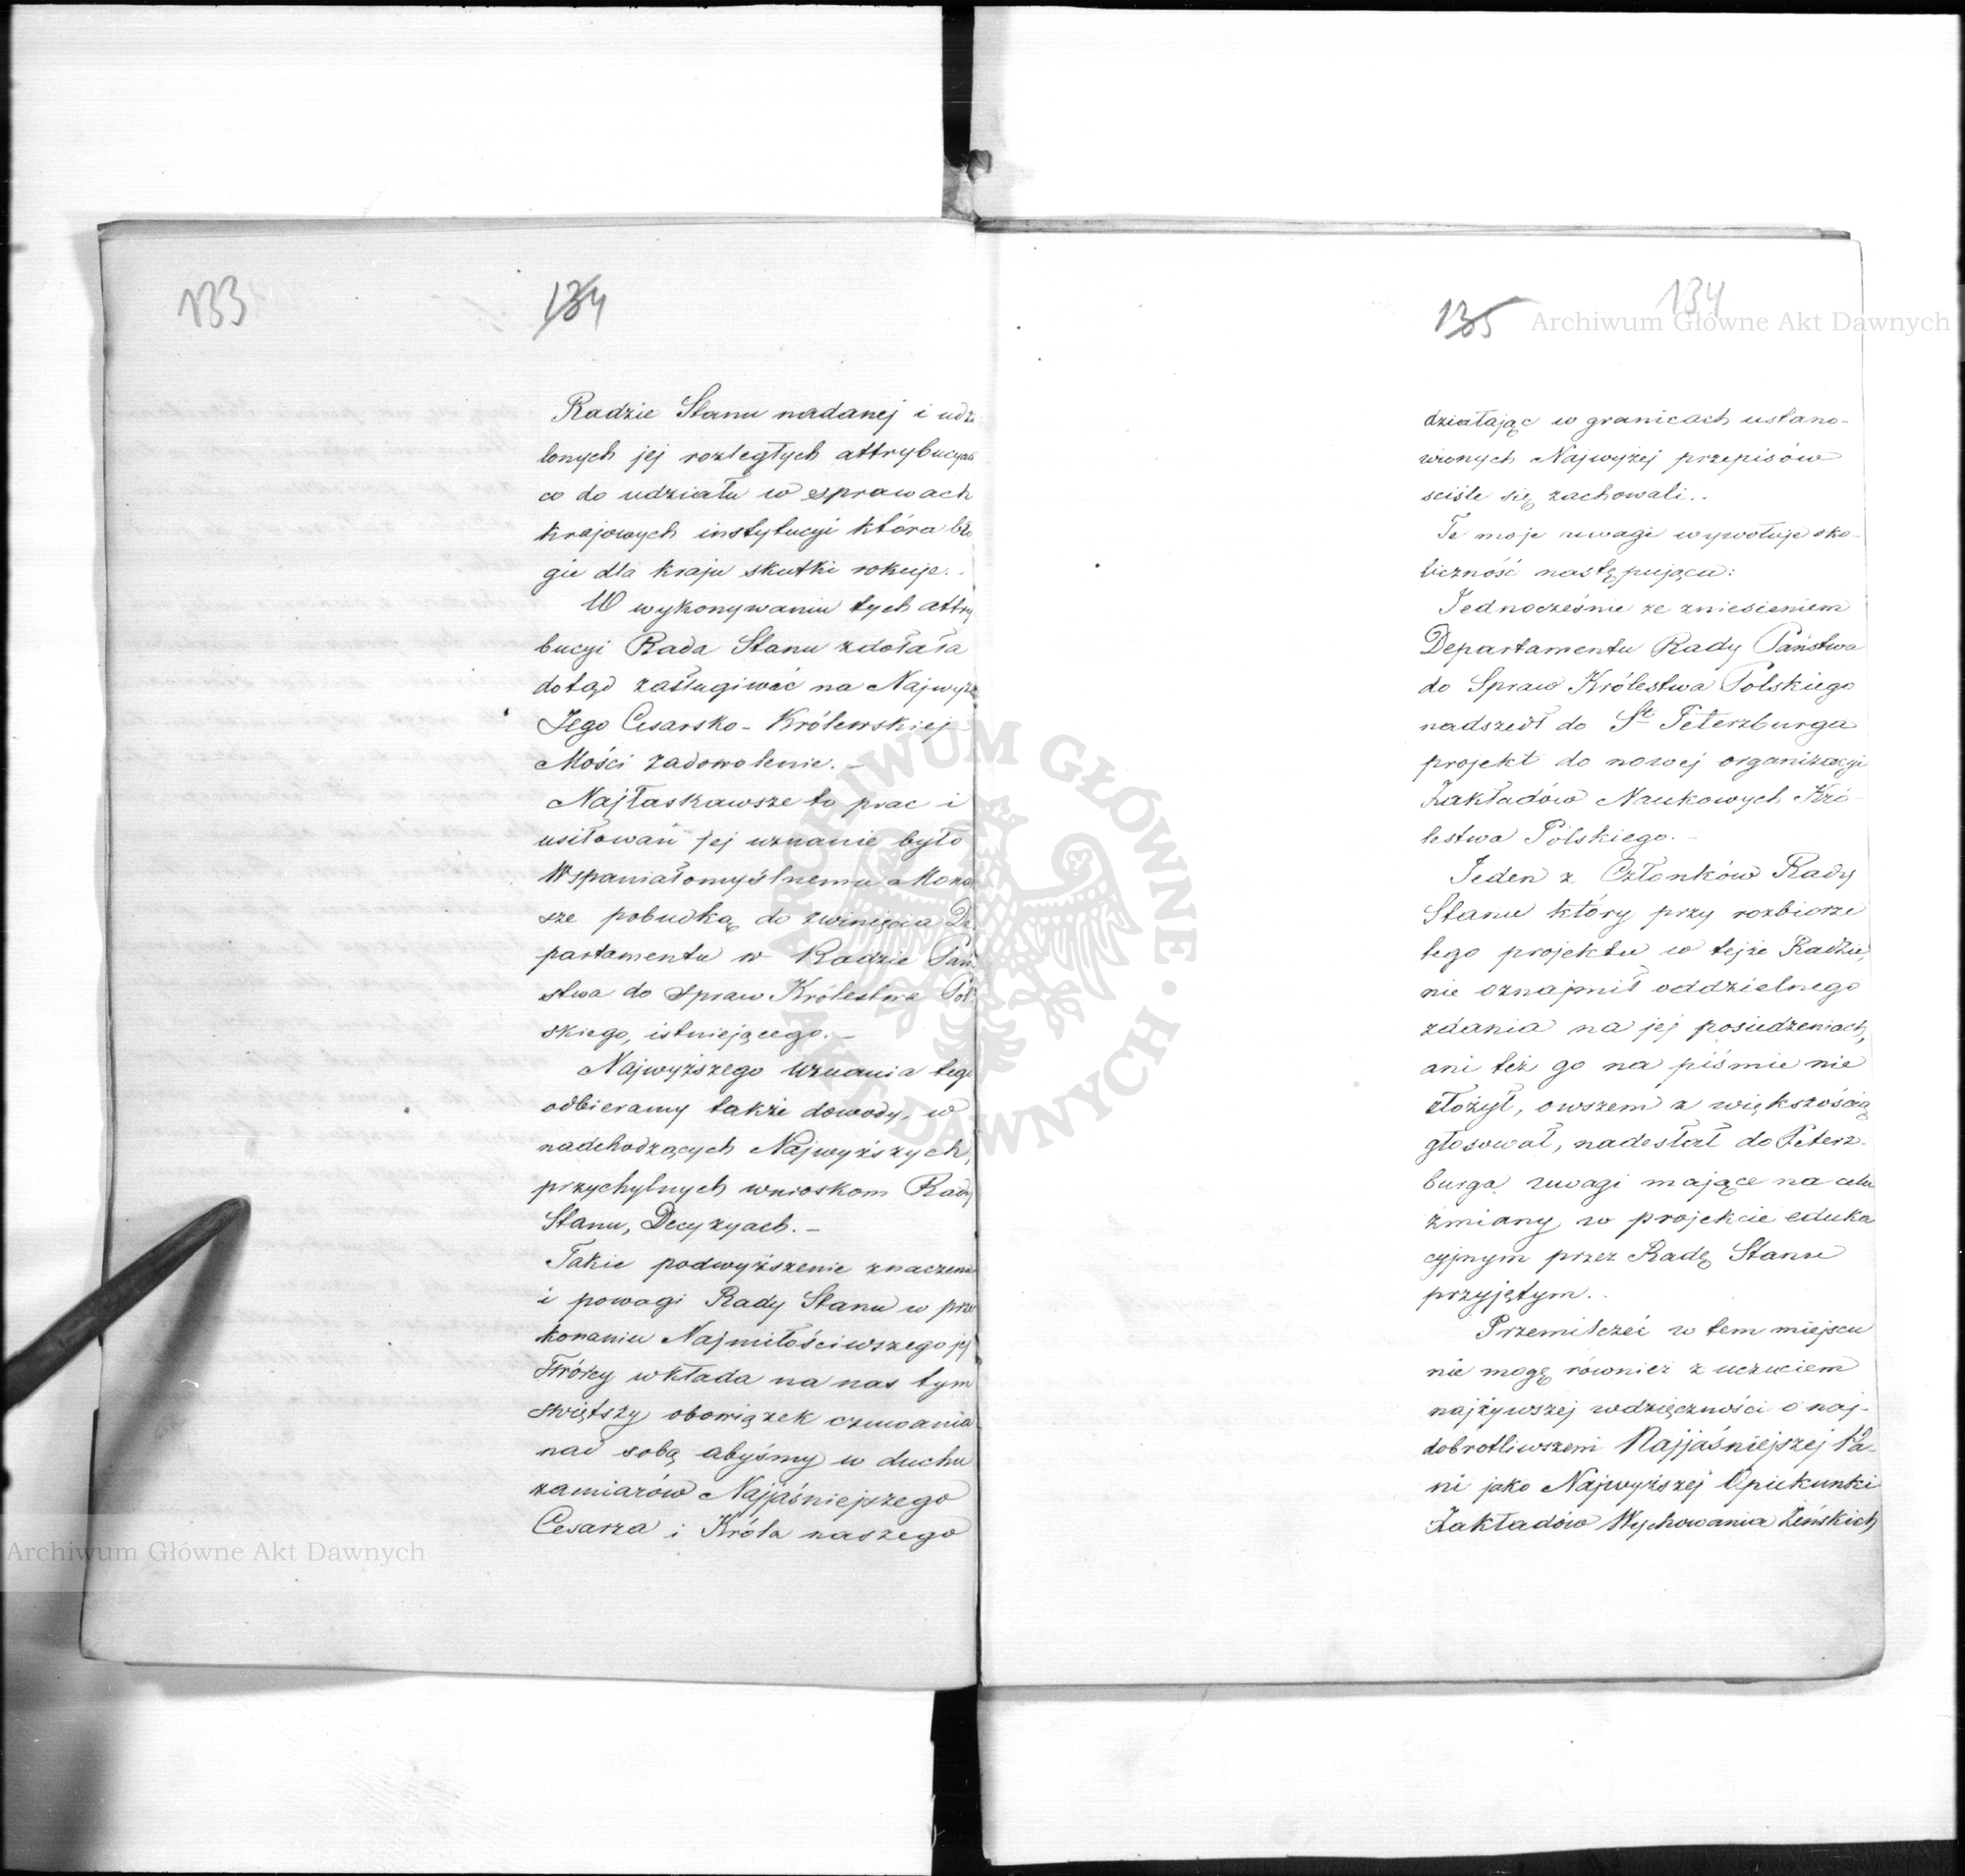 133
134
Radzie Stanu nadanej i udzi
lonych jej rozległych attrybucyach
co do udziału w sprawach
krajowych instytucyi która bło
gie dla kraju skutki rokuje.
W wykonywaniu tych attry
bucyi Rada Stanu zdołała
dotąd zasługiwać na Najwyższe
Jego Cesarsko-Królewskiej
Mości zadowolenie. –
Najłaskawsze to prac i
usiłowań jej uznanie było
Wspaniałomyślnemu Monar
sze pobudką do zwinięcia De
partamentu w Radzie Pań
stwa do spraw Królestwa Pol
skiego, istniejącego. –
Najwyższego uznania tego
odbieramy także dowody, w
nadchodzących Najwyższych,
przychylnych wnioskom Rady
Stanu, Decyzyach. –
Takie podwyższenie znaczenia
i powagi Rady Stanu w prze
konaniu Najmiłościwszego jej
Twórcy wkłada na nas tym
świętszy obowiązek czuwania
nad sobą abyśmy w duchu
zamiarów Najjaśniejszego
Cesarza i Króla naszego
134
135
działając w granicach ustano-
wionych Najwyżej przepisów
ściśle się zachowali..
Te moje uwagi wywołuje oko-
liczność następująca:
Jednocześnie ze zniesieniem
Departamentu Rady Państwa
do Spraw Królestwa Polskiego
nadszedł do St Peterzburga
projekt do nowej organizacyi
Zakładów Naukowych Kró-
lestwa Polskiego. –
Jeden z Członków Rady
Stanu który przy rozbiorze
tego projektu w tejże Radzie,
nie oznajmił oddzielnego
zdania na jej posiedzeniach,
ani też go na piśmie nie
złożył, owszem z większością
głosował, nadesłał do Peterz-
burga uwagi mające na celu
zmiany w projekcie eduka
cyjnym przez Radę Stanu
przyjętym..
Przemilczeć w tem miejscu
nie mogę również z uczuciem
najżywszej wdzięczności o naj-
dobrotliwszem Najjaśniejszej Pa-
ni jako Najwyższej Opiekunki
Zakładów Wychowania Żeńskich
Archiwum Główne Akt Dawnych
ARCHIWUM GŁÓWNE AKT DAWNYCH
Archiwum Główne Akt Dawnych